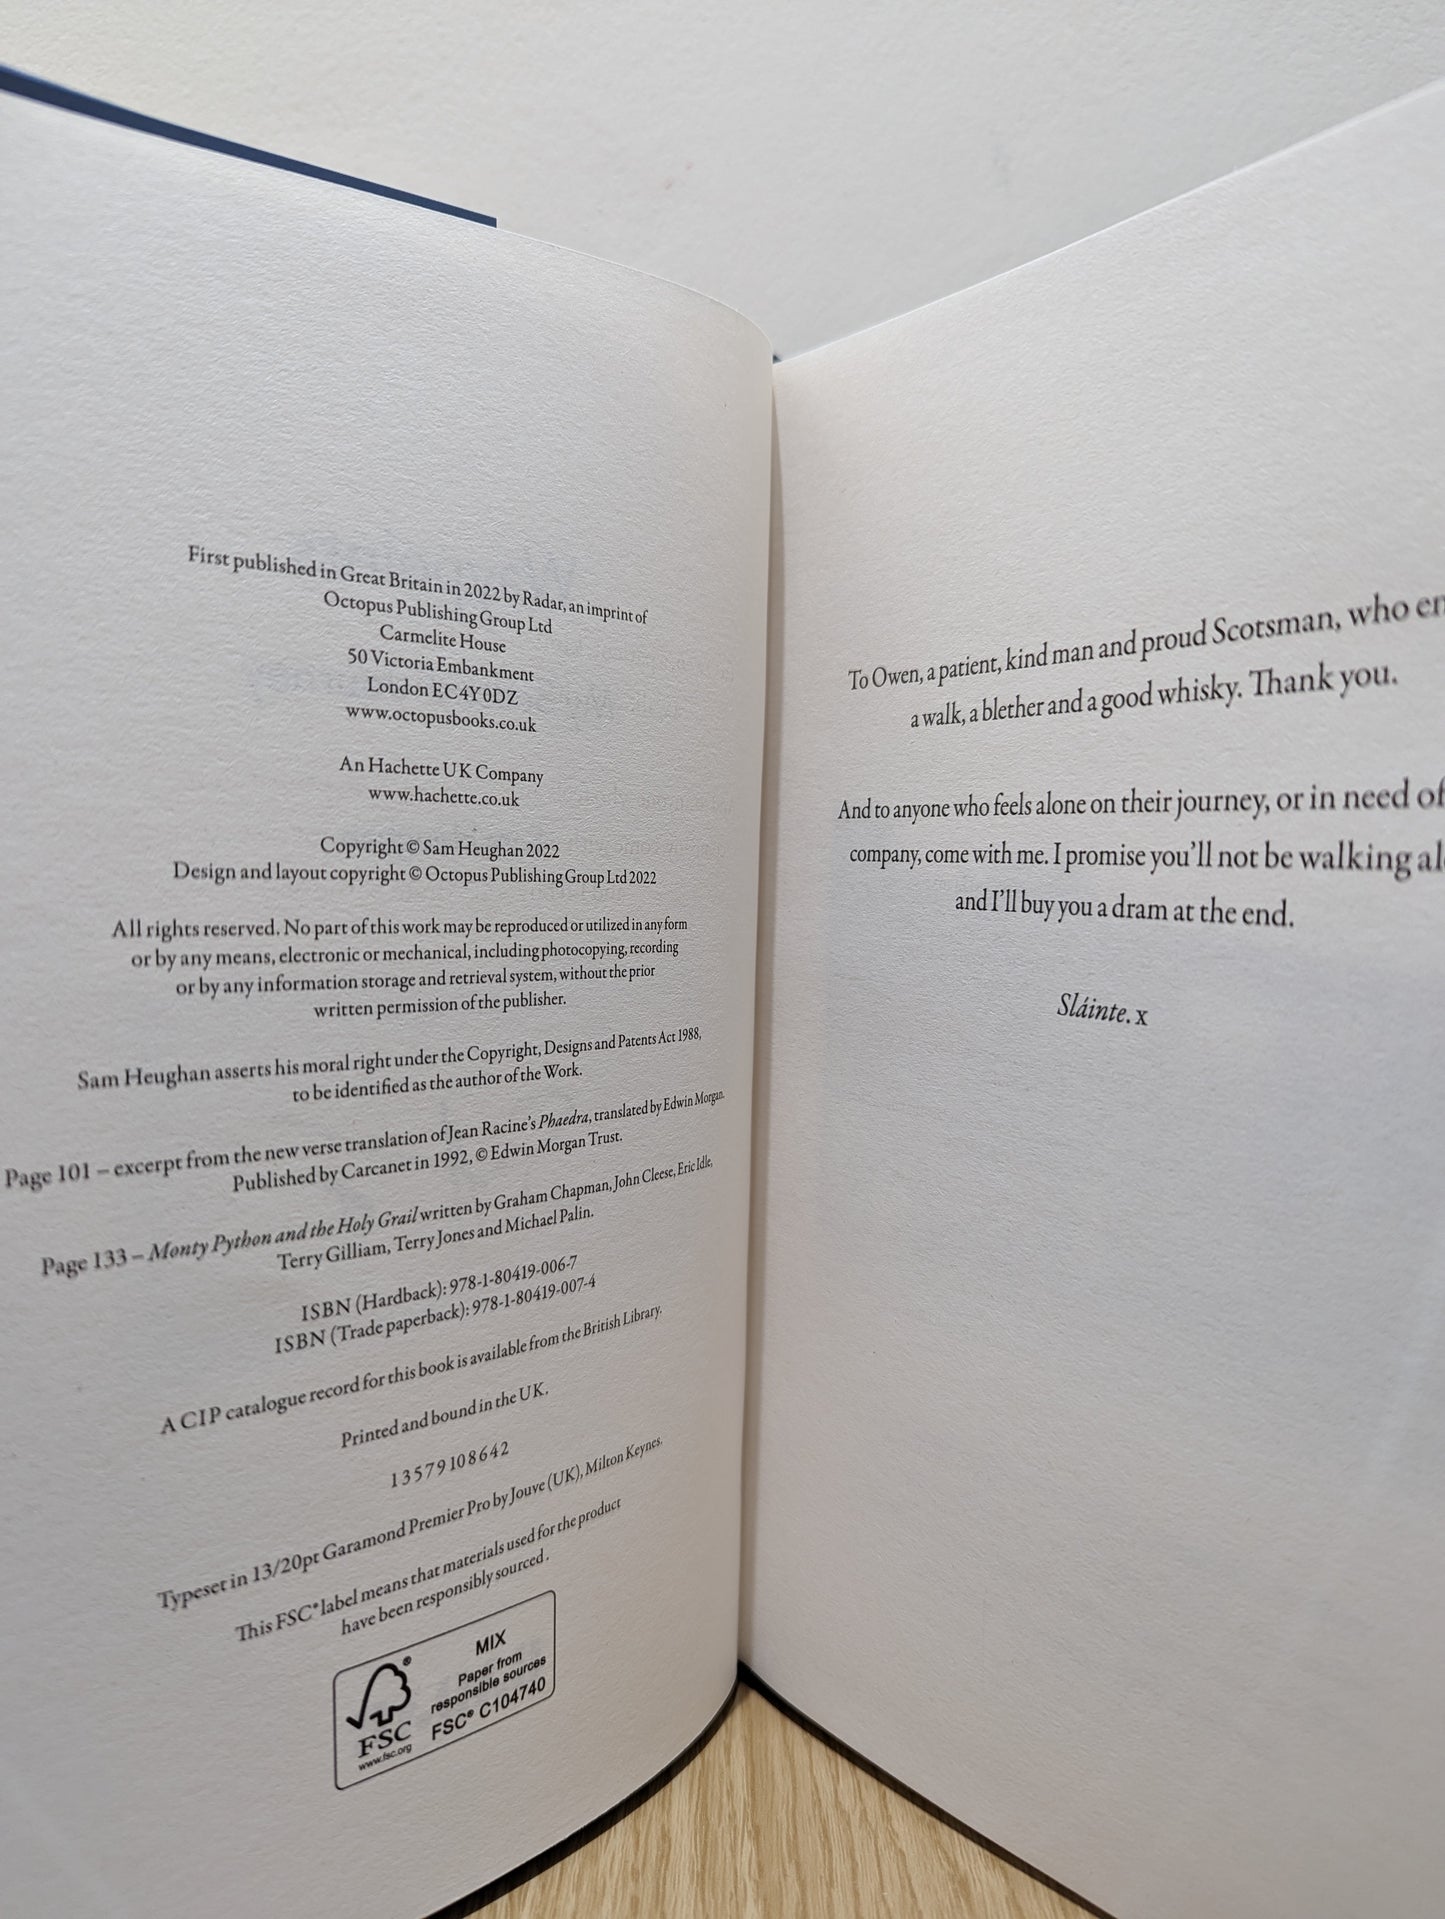 First published in Great Britain in 2022 by Radar, an imprint of
Octopus Publishing Group Ltd
Carmelite House
50 Victoria Embankment
London EC4Y 0DZ
www.octopusbooks.co.uk
An Hachette UK Company
www.hachette.co.uk
Copyright © Sam Heughan 2022
Design and layout copyright © Octopus Publishing Group Ltd 2022
All rights reserved. No part of this work may be reproduced or utilized in any form
or by any means, electronic or mechanical, including photocopying, recording
or by any information storage and retrieval system, without the prior
written permission of the publisher.
Sam Heughan asserts his moral right under the Copyright, Designs and Patents Act 1988,
to be identified as the author of the Work.
Page 101 – excerpt from the new verse translation of Jean Racine's Phaedra, translated by Edwin Morgan.
Published by Carcanet in 1992, © Edwin Morgan Trust.
Page 133 – Monty Python and the Holy Grail written by Graham Chapman, John Cleese, Eric Idle,
Terry Gilliam, Terry Jones and Michael Palin.
ISBN (Hardback): 978-1-80419-006-7
ISBN (Trade paperback): 978-1-80419-007-4
A CIP catalogue record for this book is available from the British Library.
Printed and bound in the UK.
1 3 5 7 9 10 8 6 4 2
Typeset in 13/20pt Garamond Premier Pro by Jouve (UK), Milton Keynes.
This FSC® label means that materials used for the product
have been responsibly sourced.
MIX
Paper from
responsible sources
FSC® C104740
®
FSC
www.fsc.org
To Owen, a patient, kind man and proud Scotsman, who
a walk, a blether and a good whisky. Thank you.
And to anyone who feels alone on their journey, or in need of
company, come with me. I promise you'll not be walking
and I'll buy you a dram at the end.
Sláinte. x